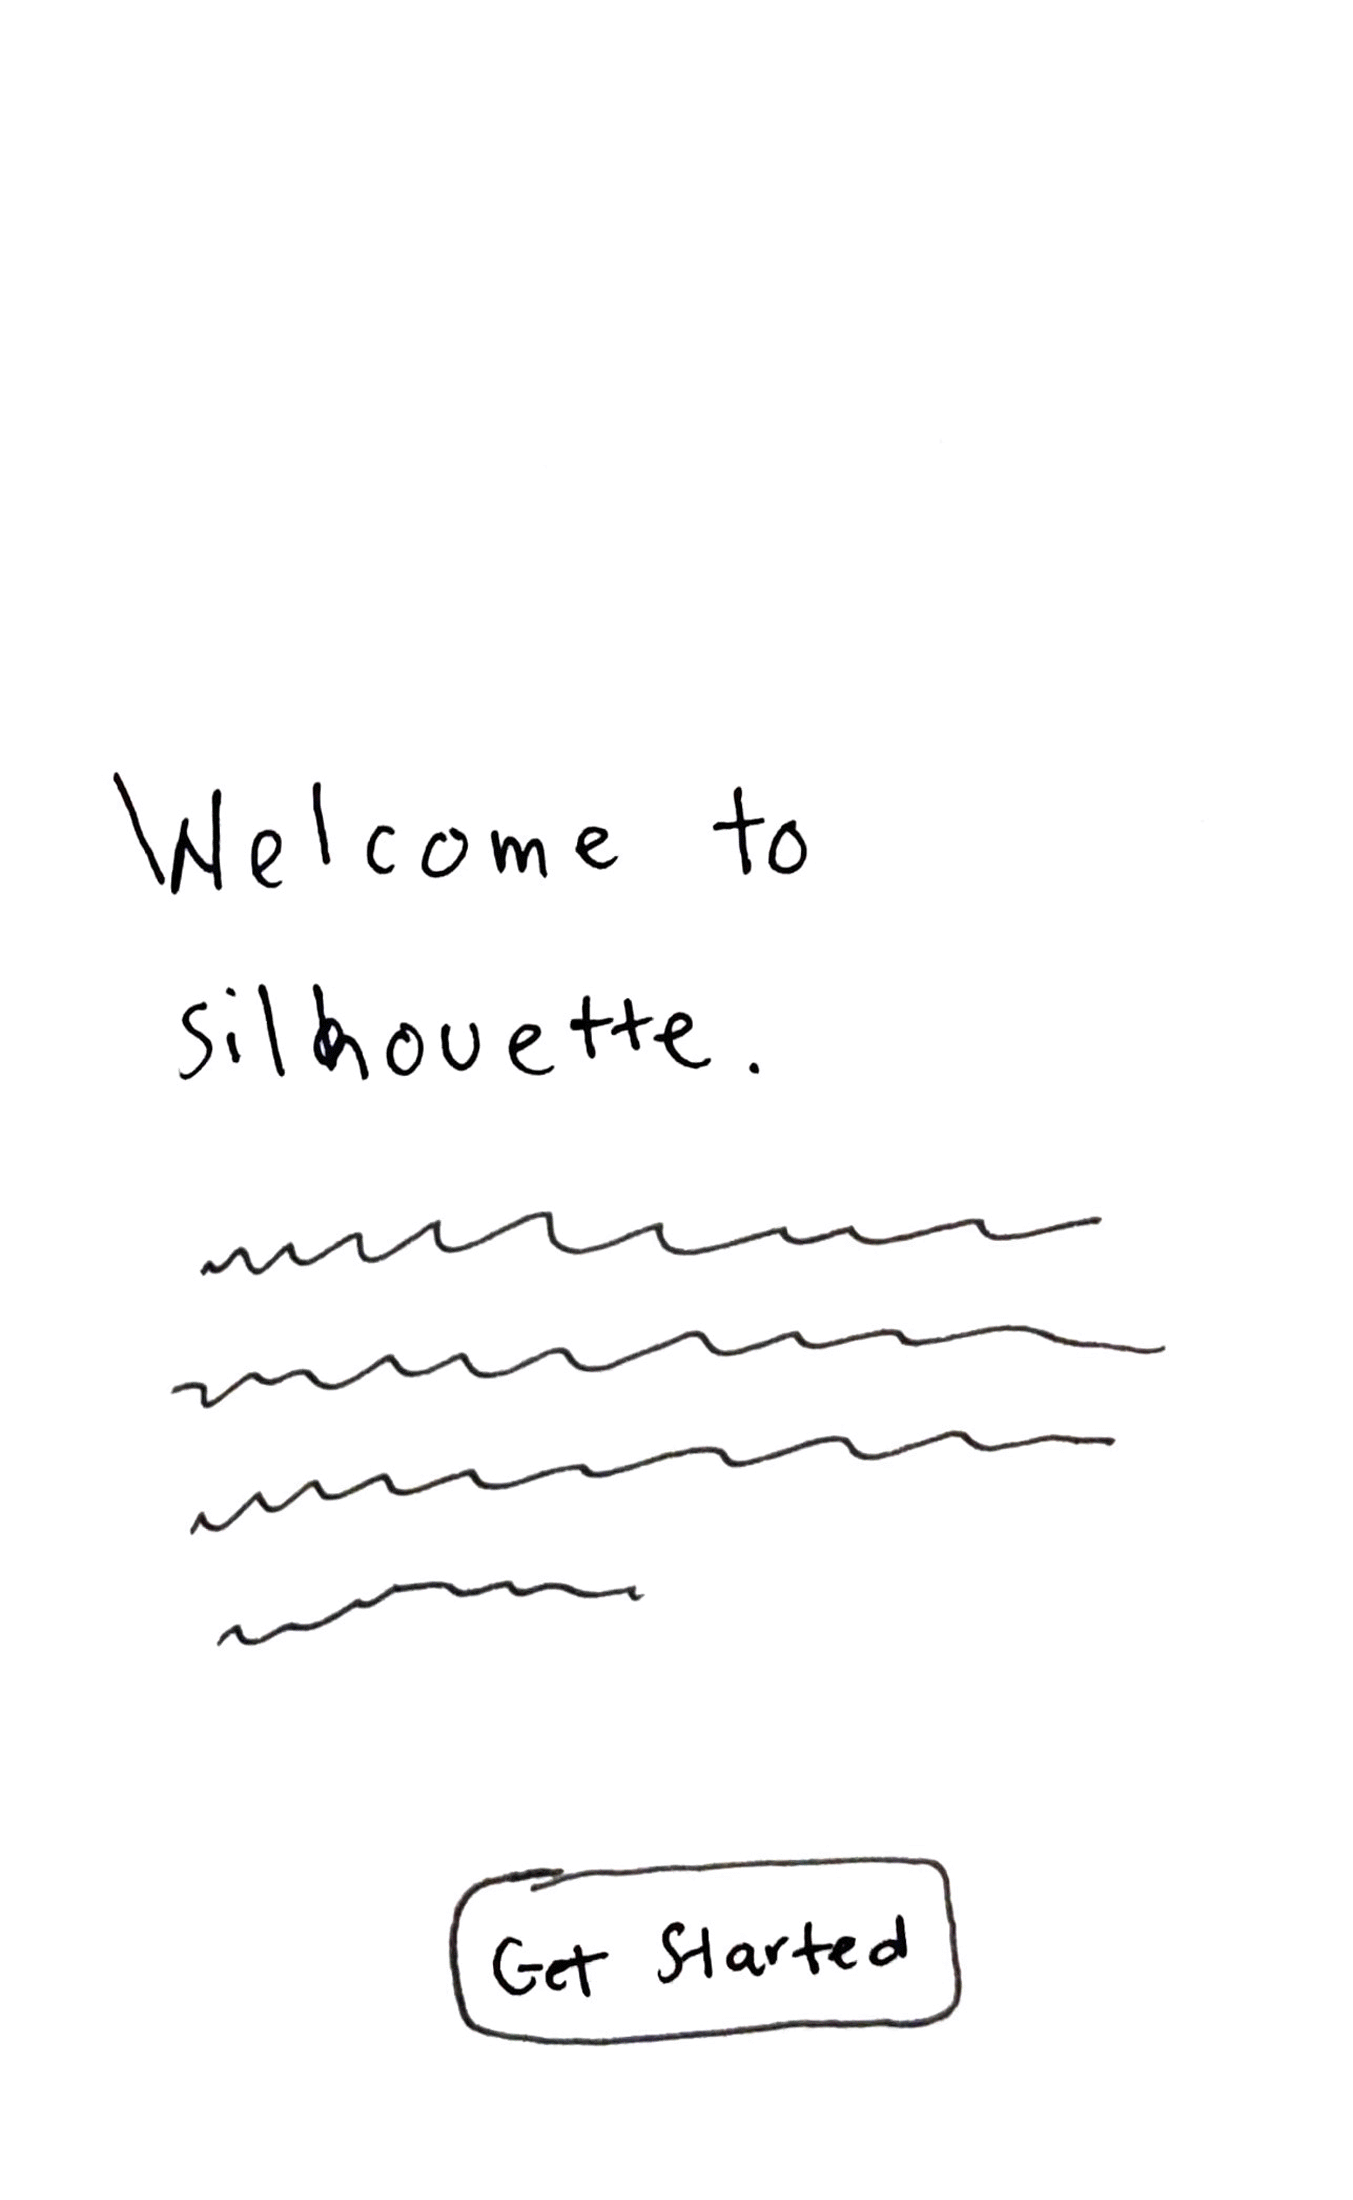 Welcome to
silhouette.
Get Started